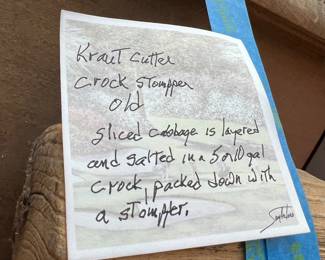 Kraut Cutter
Crock Stompper
Old
sliced cabbage is layered
and salted in a 5 or 10 gal
Crock, packed down with
a stompper.